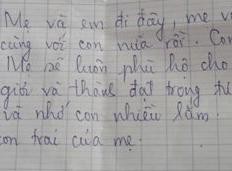 Mẹ và em đi đây, mẹ
cùng với con nữa rồi. Con
Mẹ sẽ luôn phù hộ cho
giỏi và thành đạt trong
và nhớ con nhiều lắm.
con trai của mẹ.